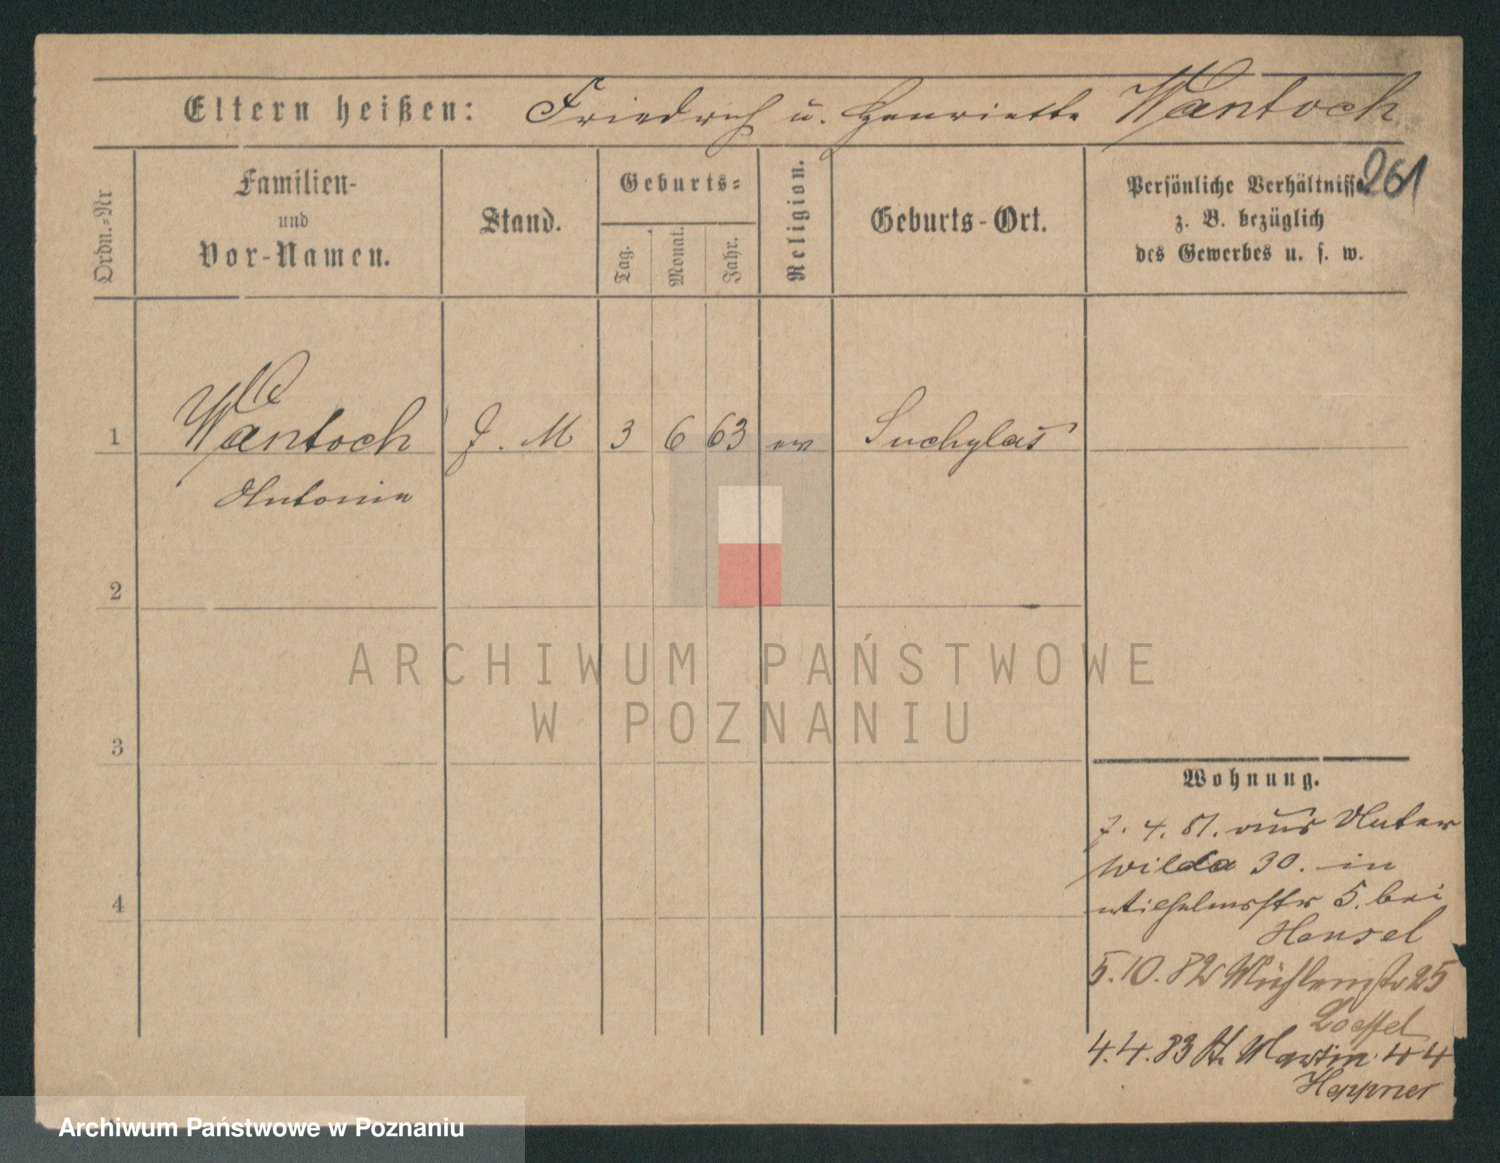 Eltern heißen: Friedrich u. Henriette Wantoch
261
Ordn.-Nr
Familien-
und
Vor-Namen.
Stand.
Geburts-
Tag.
Monat.
Jahr.
Religion.
Geburts-Ort.
Persönliche Verhältnisse
z. B. bezüglich
des Gewerbes u. s. w.
1 Wantoch J. M 3 6 63 ev Suchylas
Antonie
2
3
4
ARCHIWUM PAŃSTWOWE
W POZNANIU
Wohnung.
7. 4. 81. aus Unter
wilda 30. in
Wilhelmsstr 5. bei
Hensel
5. 10. 82 Mühlenstr 25
Loeffel
4. 4. 83 St. Martin 44
Heppner
Archiwum Państwowe w Poznaniu